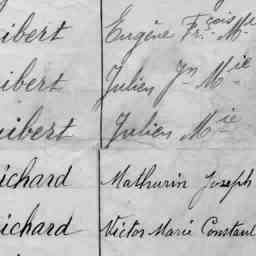 ibert Eugène Fr.çois M
ibert Julien Jn Mie
uibert Julien Mie
ichard Mathurin Joseph
ichard Victor Marie Constant